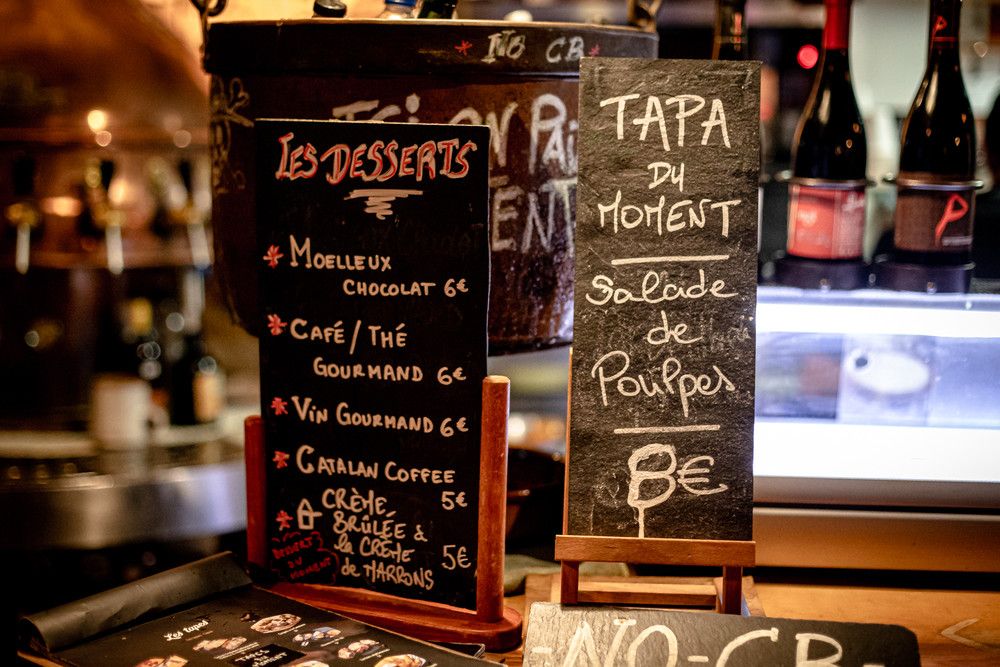 NO CB
ICI ON PAI
ENT
LES DESSERTS
MOELLEUX
CHOCOLAT 6€
CAFÉ / THÉ
GOURMAND 6€
VIN GOURMAND 6€
CATALAN COFFEE
5€
CRÈME
BRÛLÉE à
la CRÈME
de MARRONS 5€
DESSERT
DU
MOMENT
TAPA
DU
MOMENT
Salade
de
Poulpes
8€
Les tapas
NO-CB